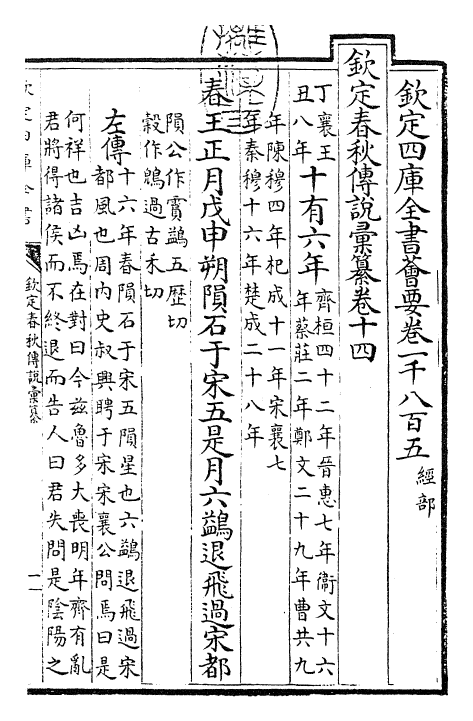 欽定四庫全書薈要卷一千八百五 經部
欽定春秋傳說彙纂卷十四
丁丑 襄王八年 十有六年 齊桓四十二年晉惠七年衞文十六年蔡莊二年鄭文二十九年曹共九
年陳穆四年杞成十一年宋襄七年秦穆十六年楚成二十八年
春王正月戊申朔隕石于宋五是月六鷁退飛過宋都
隕公作霣鷁五歴切
穀作鶂過古禾切
左傳 十六年春隕石于宋五隕星也六鷁退飛過宋
都風也周内史叔興聘于宋宋襄公問焉曰是
何祥也吉凶焉在對曰今兹魯多大喪明年齊有亂
君將得諸侯而不終退而告人曰君失問是陰陽之
欽定四庫全書
欽定春秋傳說彙纂
一